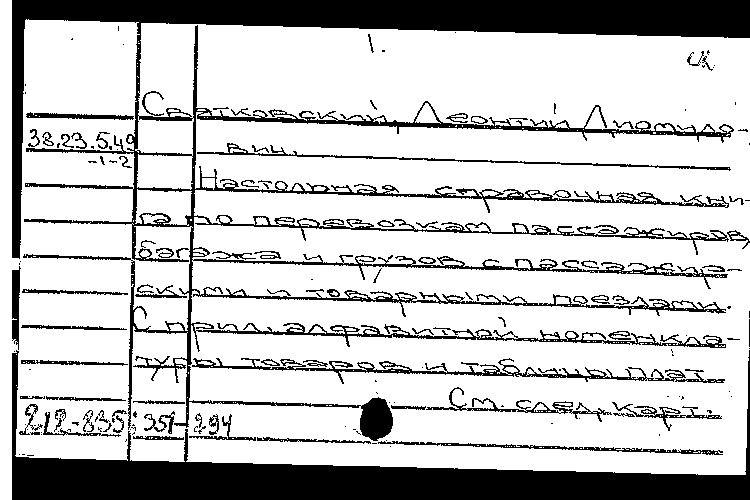 1.
Сватковский, Леонтий Диомидо-
38.23.5.49
-1-2
вич.
Настольная справочная кни-
га по перевозкам пассажиров,
багажа и грузов с пассажир-
скими и товарными поездами.
С прил. алфавитной номенкла-
туры товаров и таблицы плат.
См. след. карт.
212-835: 351-294